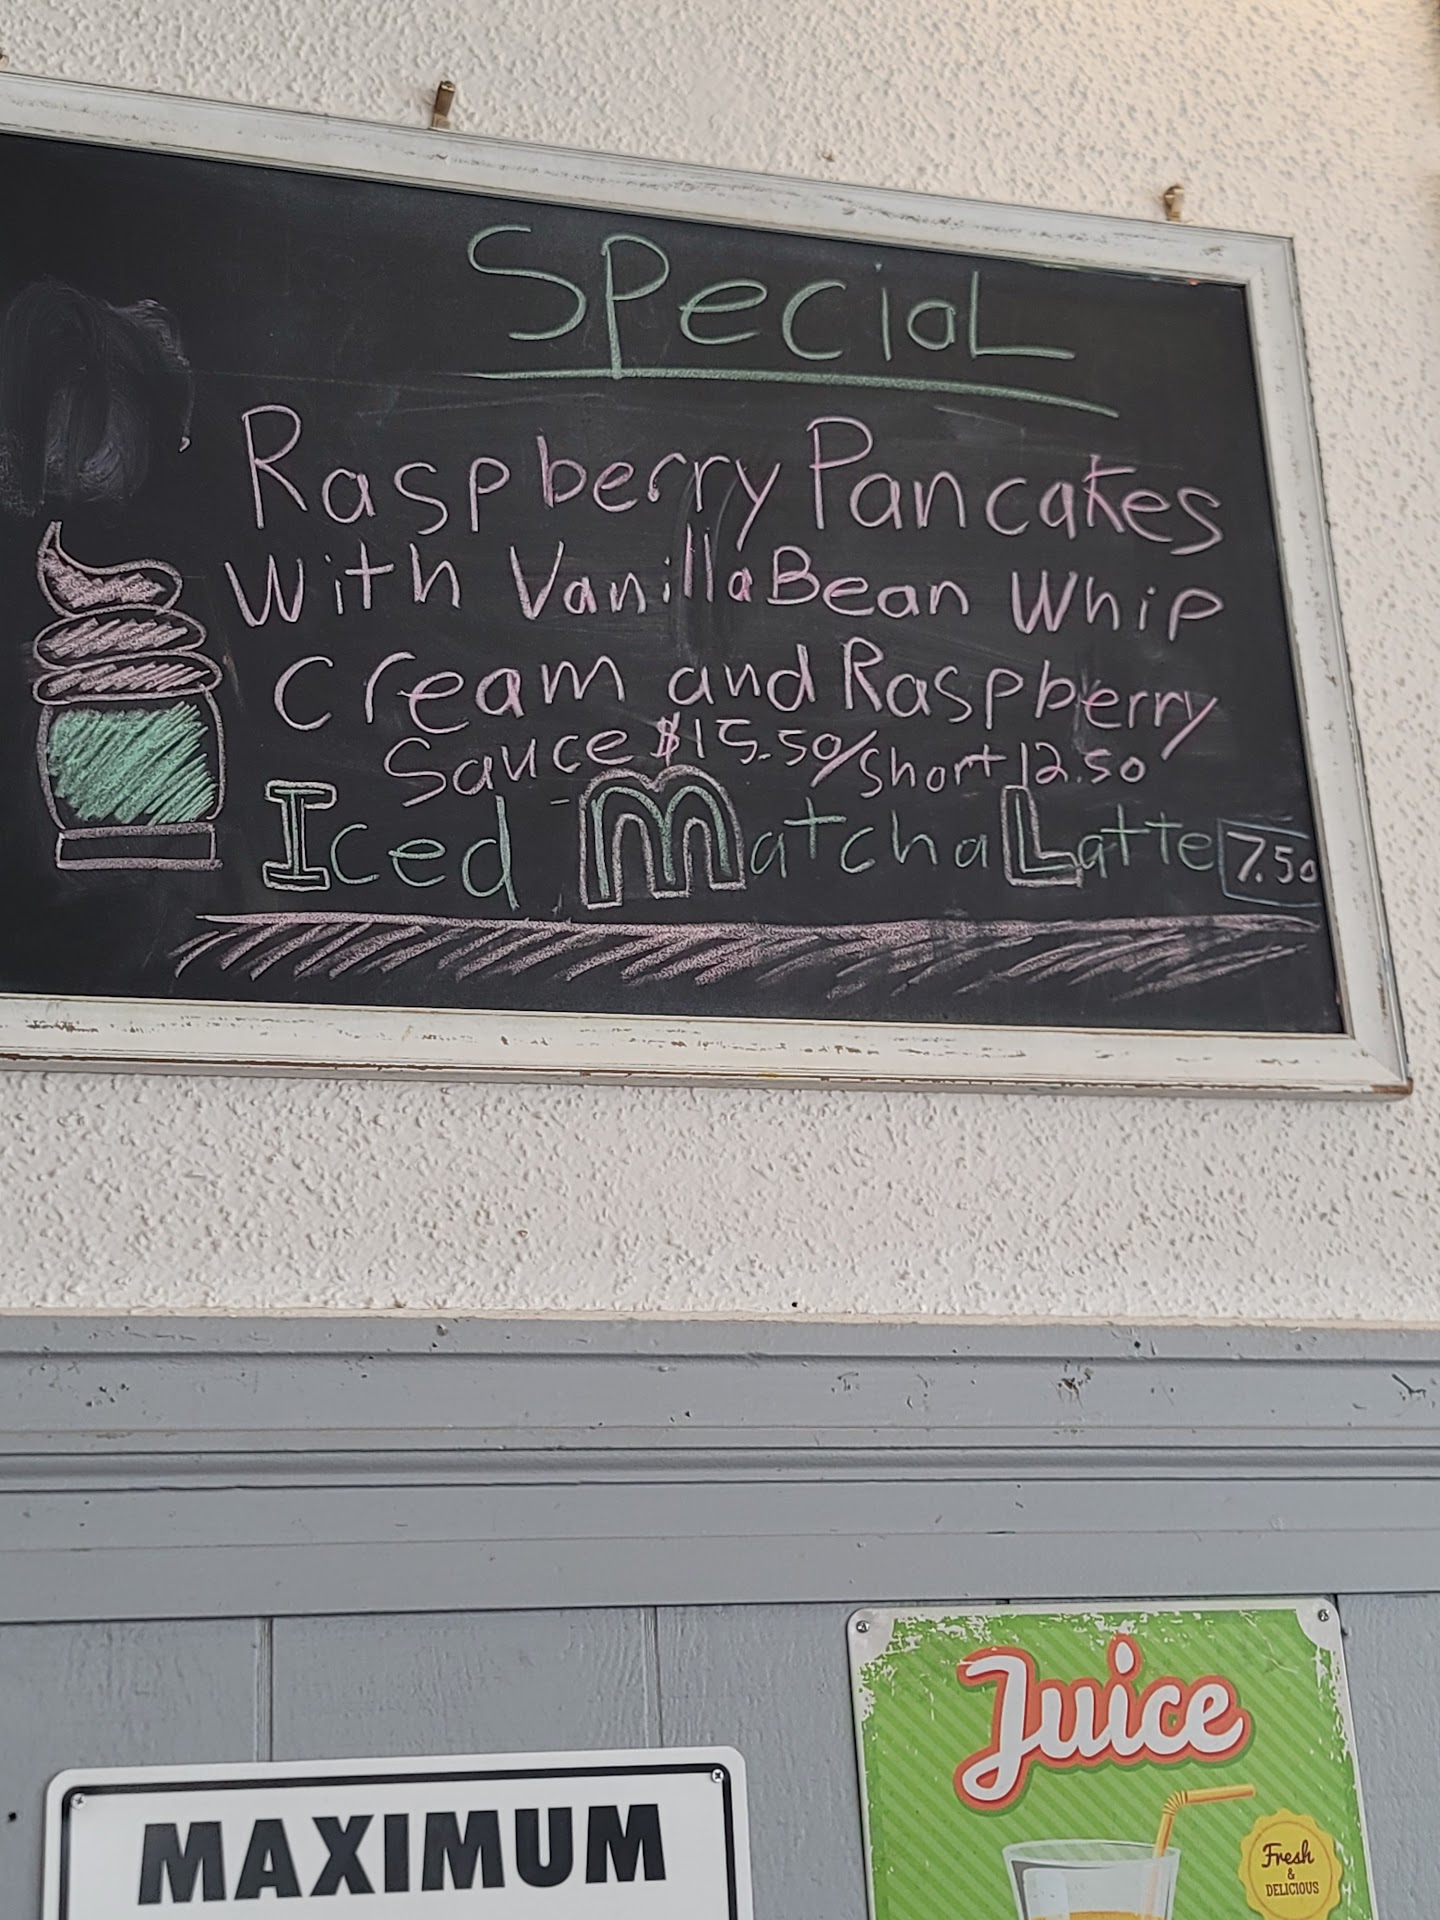 SPeciaL
Raspberry Pancakes
With Vanilla Bean Whip
Cream and Raspberry
Sauce $15.50/Short 12.50
Iced Matcha Latte 7.50
Juice
Fresh
&
DELICIOUS
MAXIMUM